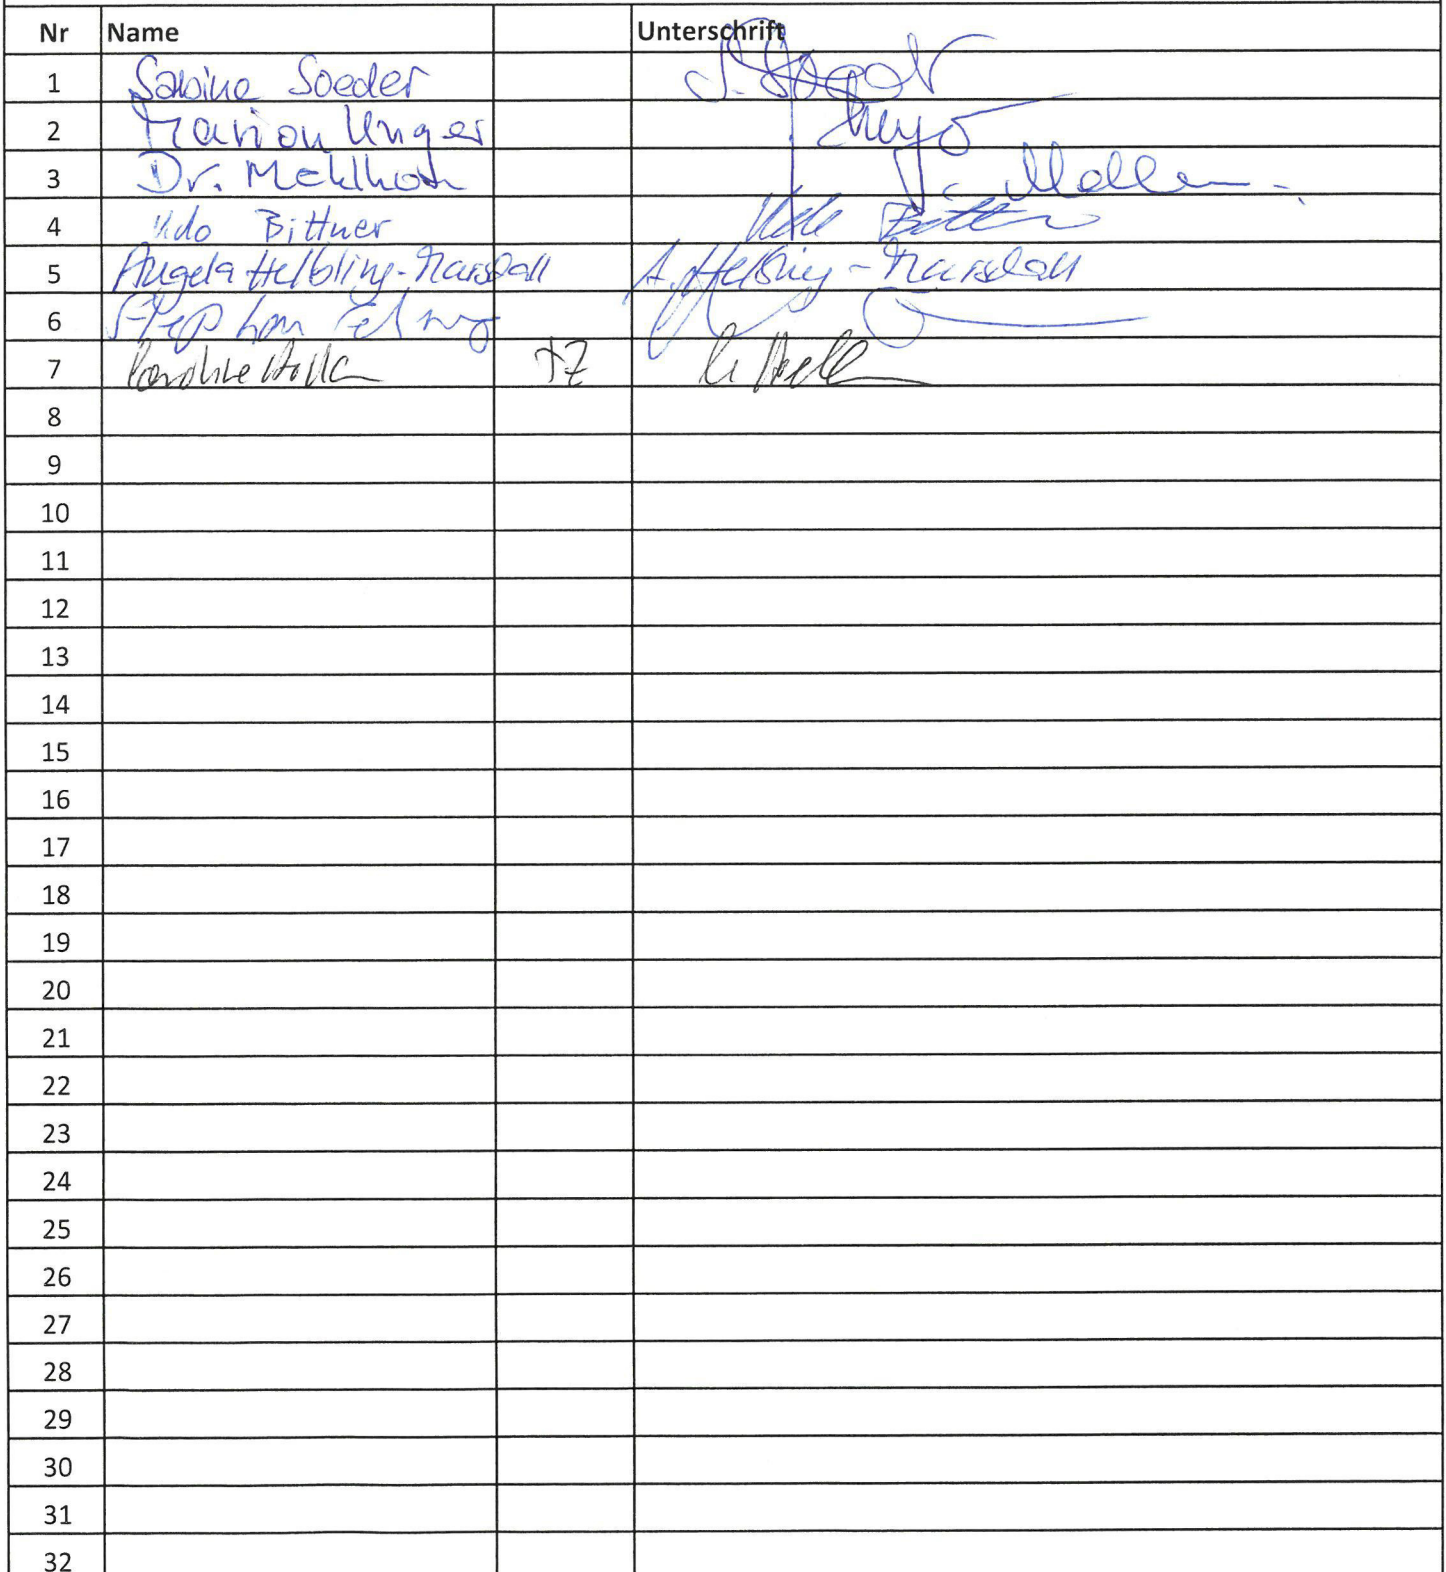 Nr Name Unterschrift
1 Sabine Soeder S. Soeder
2 Marion Unger Unger
3 Dr. Mehlhorn
4 Udo Bittner Udo Bittner
5 Angela Helbling-Marschall A. Helbling-Marschall
6 Stephan
7 Caroline TZ
8
9
10
11
12
13
14
15
16
17
18
19
20
21
22
23
24
25
26
27
28
29
30
31
32